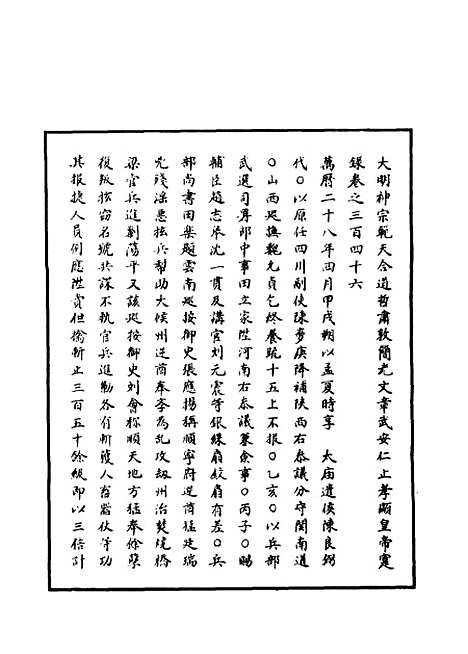 大明神宗範天合道哲肅敦簡光文章武安仁止孝顯皇帝實
錄卷之三百四十六
萬曆二十八年四月甲戌朔以孟夏時享　太廟遣侯陳良弼
代○以原任四川副使陳多庚降補陝西右參議分守關南道
○山西巡撫魏允貞乞終養疏十五上不報○乙亥○以兵部
武選司郎中事田立家陞河南右參議兼僉事○丙子○賜
輔臣趙志皋沈一貫及講官劉元震等銀綠扇紋扇有差○兵
部尚書田樂題雲南巡按御史張應揚稱順寧府逆酋猛廷瑞
兇殘淫惡拒兵幫助大侯州逆酋奉學為亂攻劫州治焚燒橋
梁官兵進剿蕩平又該巡按御史劉會稱順天地方猛奉餘孽
復叛擅竊名號共謀不軌官兵進勦各有斬獲人畜器伏等功
其报捷人員例應陞賞但擒斬止三百五十餘級即以三倍計